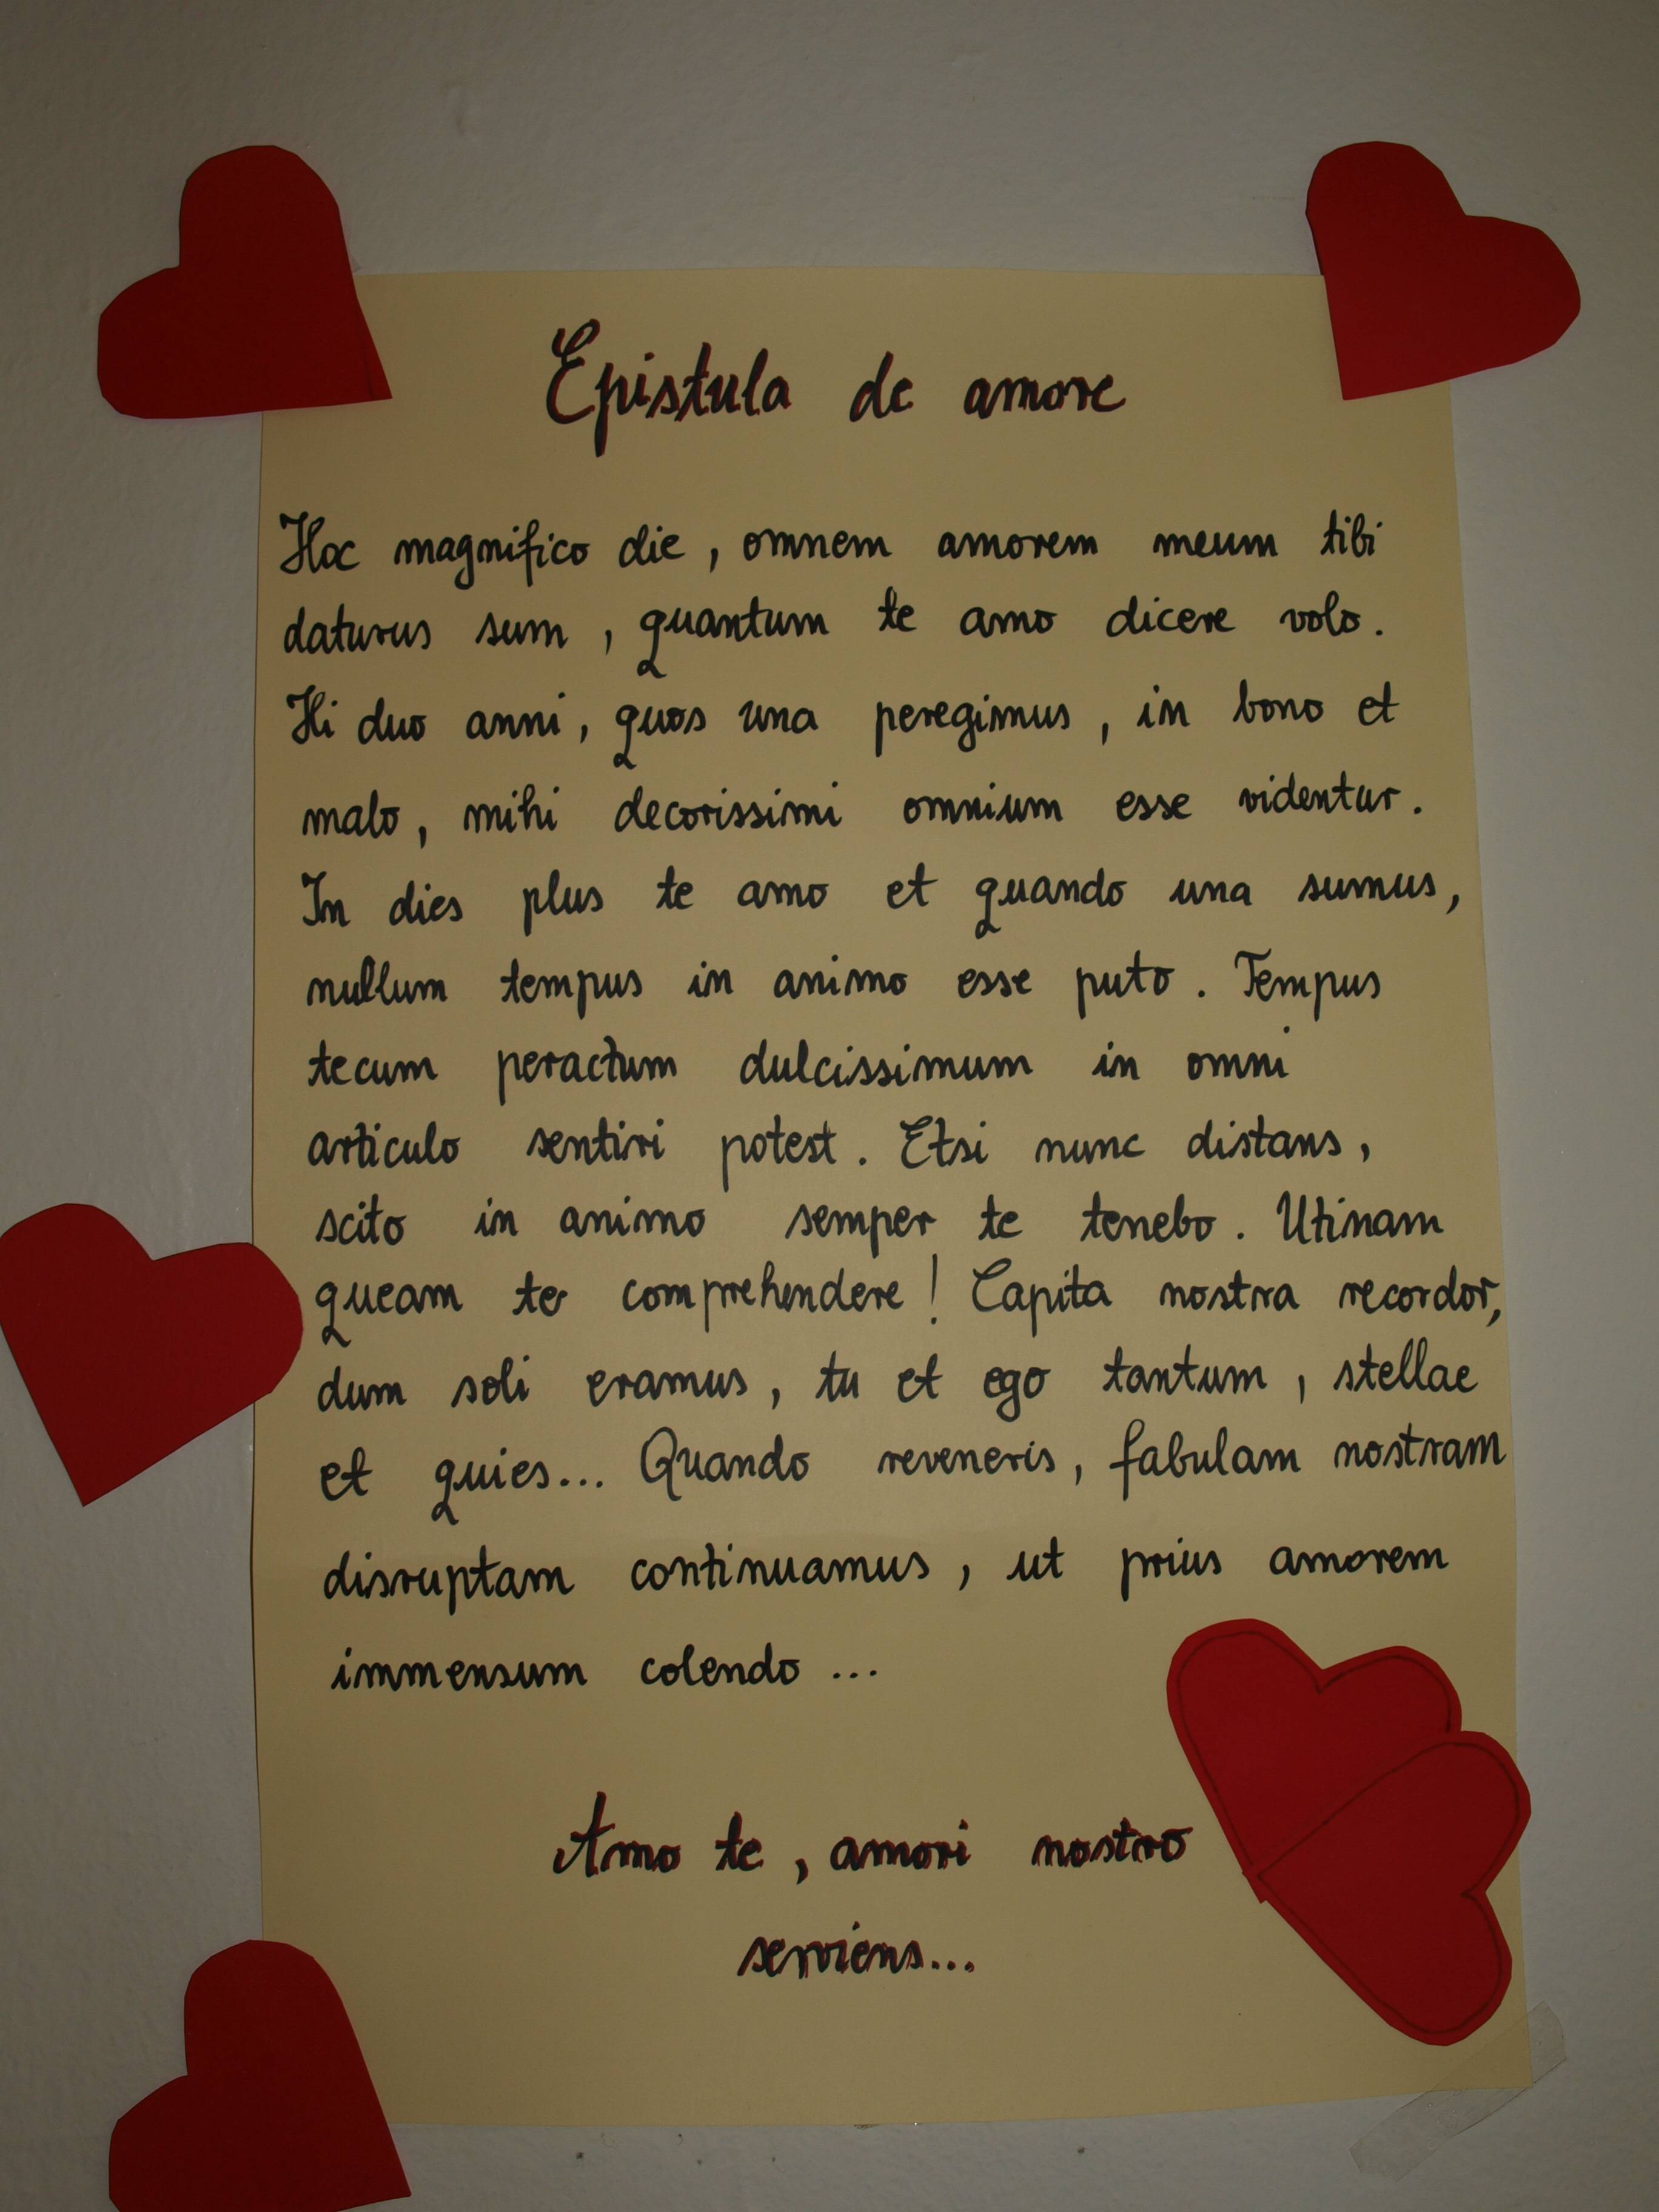 Epistula de amore
Hoc magnifico die, omnem amorem meum tibi
daturus sum, quantum te amo dicere volo.
Hi duo anni, quos una peregimus, in bono et
malo, mihi decorissimi omnium esse videntur.
In dies plus te amo et quando una sumus,
nullum tempus in animo esse puto. Tempus
tecum peractum dulcissimum in omni
articulo sentiri potest. Etsi nunc distans,
scito in animo semper te tenebo. Utinam
queam te comprehendere! Capita nostra recordor,
dum soli eramus, tu et ego tantum, stellae
et quies... Quando reveneris, fabulam nostram
disruptam continuamus, ut prius amorem
immensum colendo ...
Amo te, amori nostro
serviens...